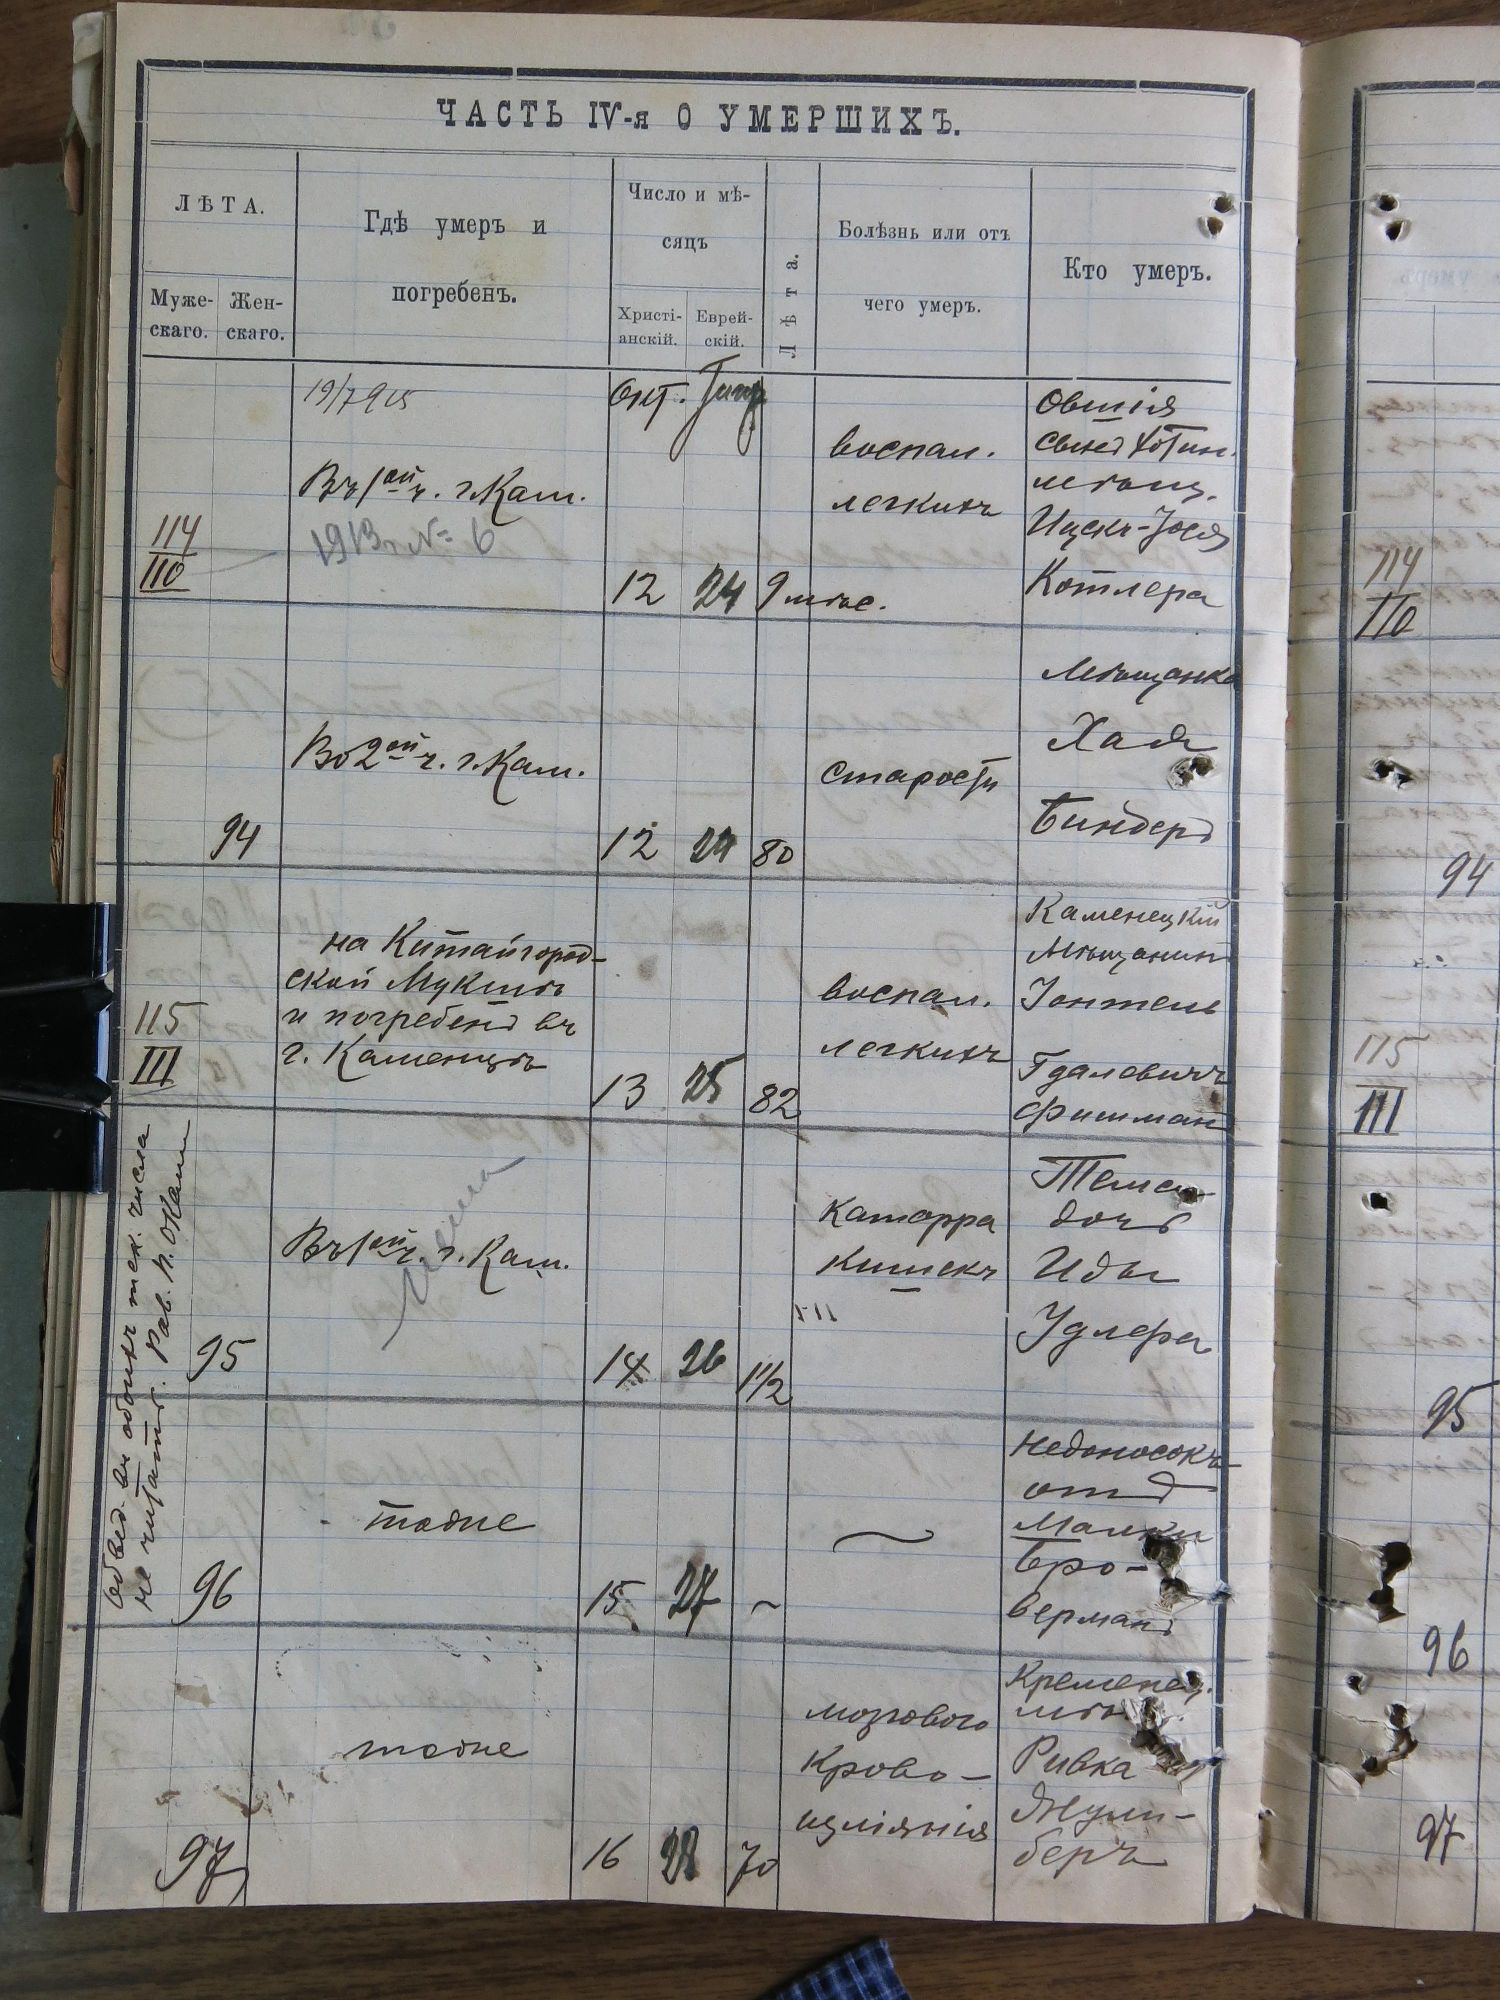 ЧАСТЬ IV-я О УМЕРШИХЪ.
ЛѢТА.
Муже-
скаго.
Жен-
скаго.
Гдѣ умеръ и
погребенъ.
Число и мѣ-
сяцъ
Христі-
анскій.
Еврей-
скій.
Лѣта.
Болѣзнь или отъ
чего умеръ.
Кто умеръ.
114
110
19/7 915
Въ 1ой ч. г. Кам.
1913 г. № 6
Окт.
12
24
9 мѣс.
воспал.
легкихъ
Овшія
сынъ Хотин.
мѣщ.
Ицекъ-Іося
Котлера
94
Во 2ой ч. г. Кам.
12
24
80
старости
Мѣщанка
Хая
Биндеръ
115
111
на Китайгород-
ской Мукшѣ
и погребенъ въ
г. Каменцѣ
13
25
82
воспал.
легкихъ
Каменецкій
Мѣщанинъ
Іонтель
Гдалевичъ
Фишманъ
95
Въ 1ой ч. г. Кам.
14
26
1 1/2
Катарра
кишекъ
дочь
Иды
Удлера
обоихъ тек. числа
не читать. Рав.
96
тоже
15
27
~
~
Недоносокъ
отъ
Малки
Бро-
верманъ
97
тоже
16
28
70
мозгового
крово-
изліянія
Кременец.
Ривка
Жули-
беръ
114
110
94
115
111
95
96
97